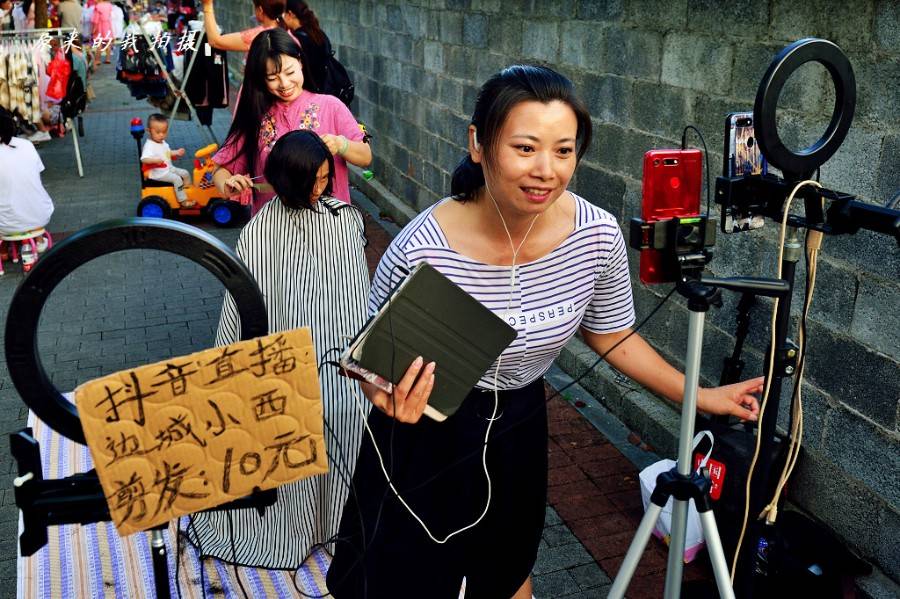 原来的我拍摄
抖音直播
边城小西
剪发:10元
PERSPEC
中国